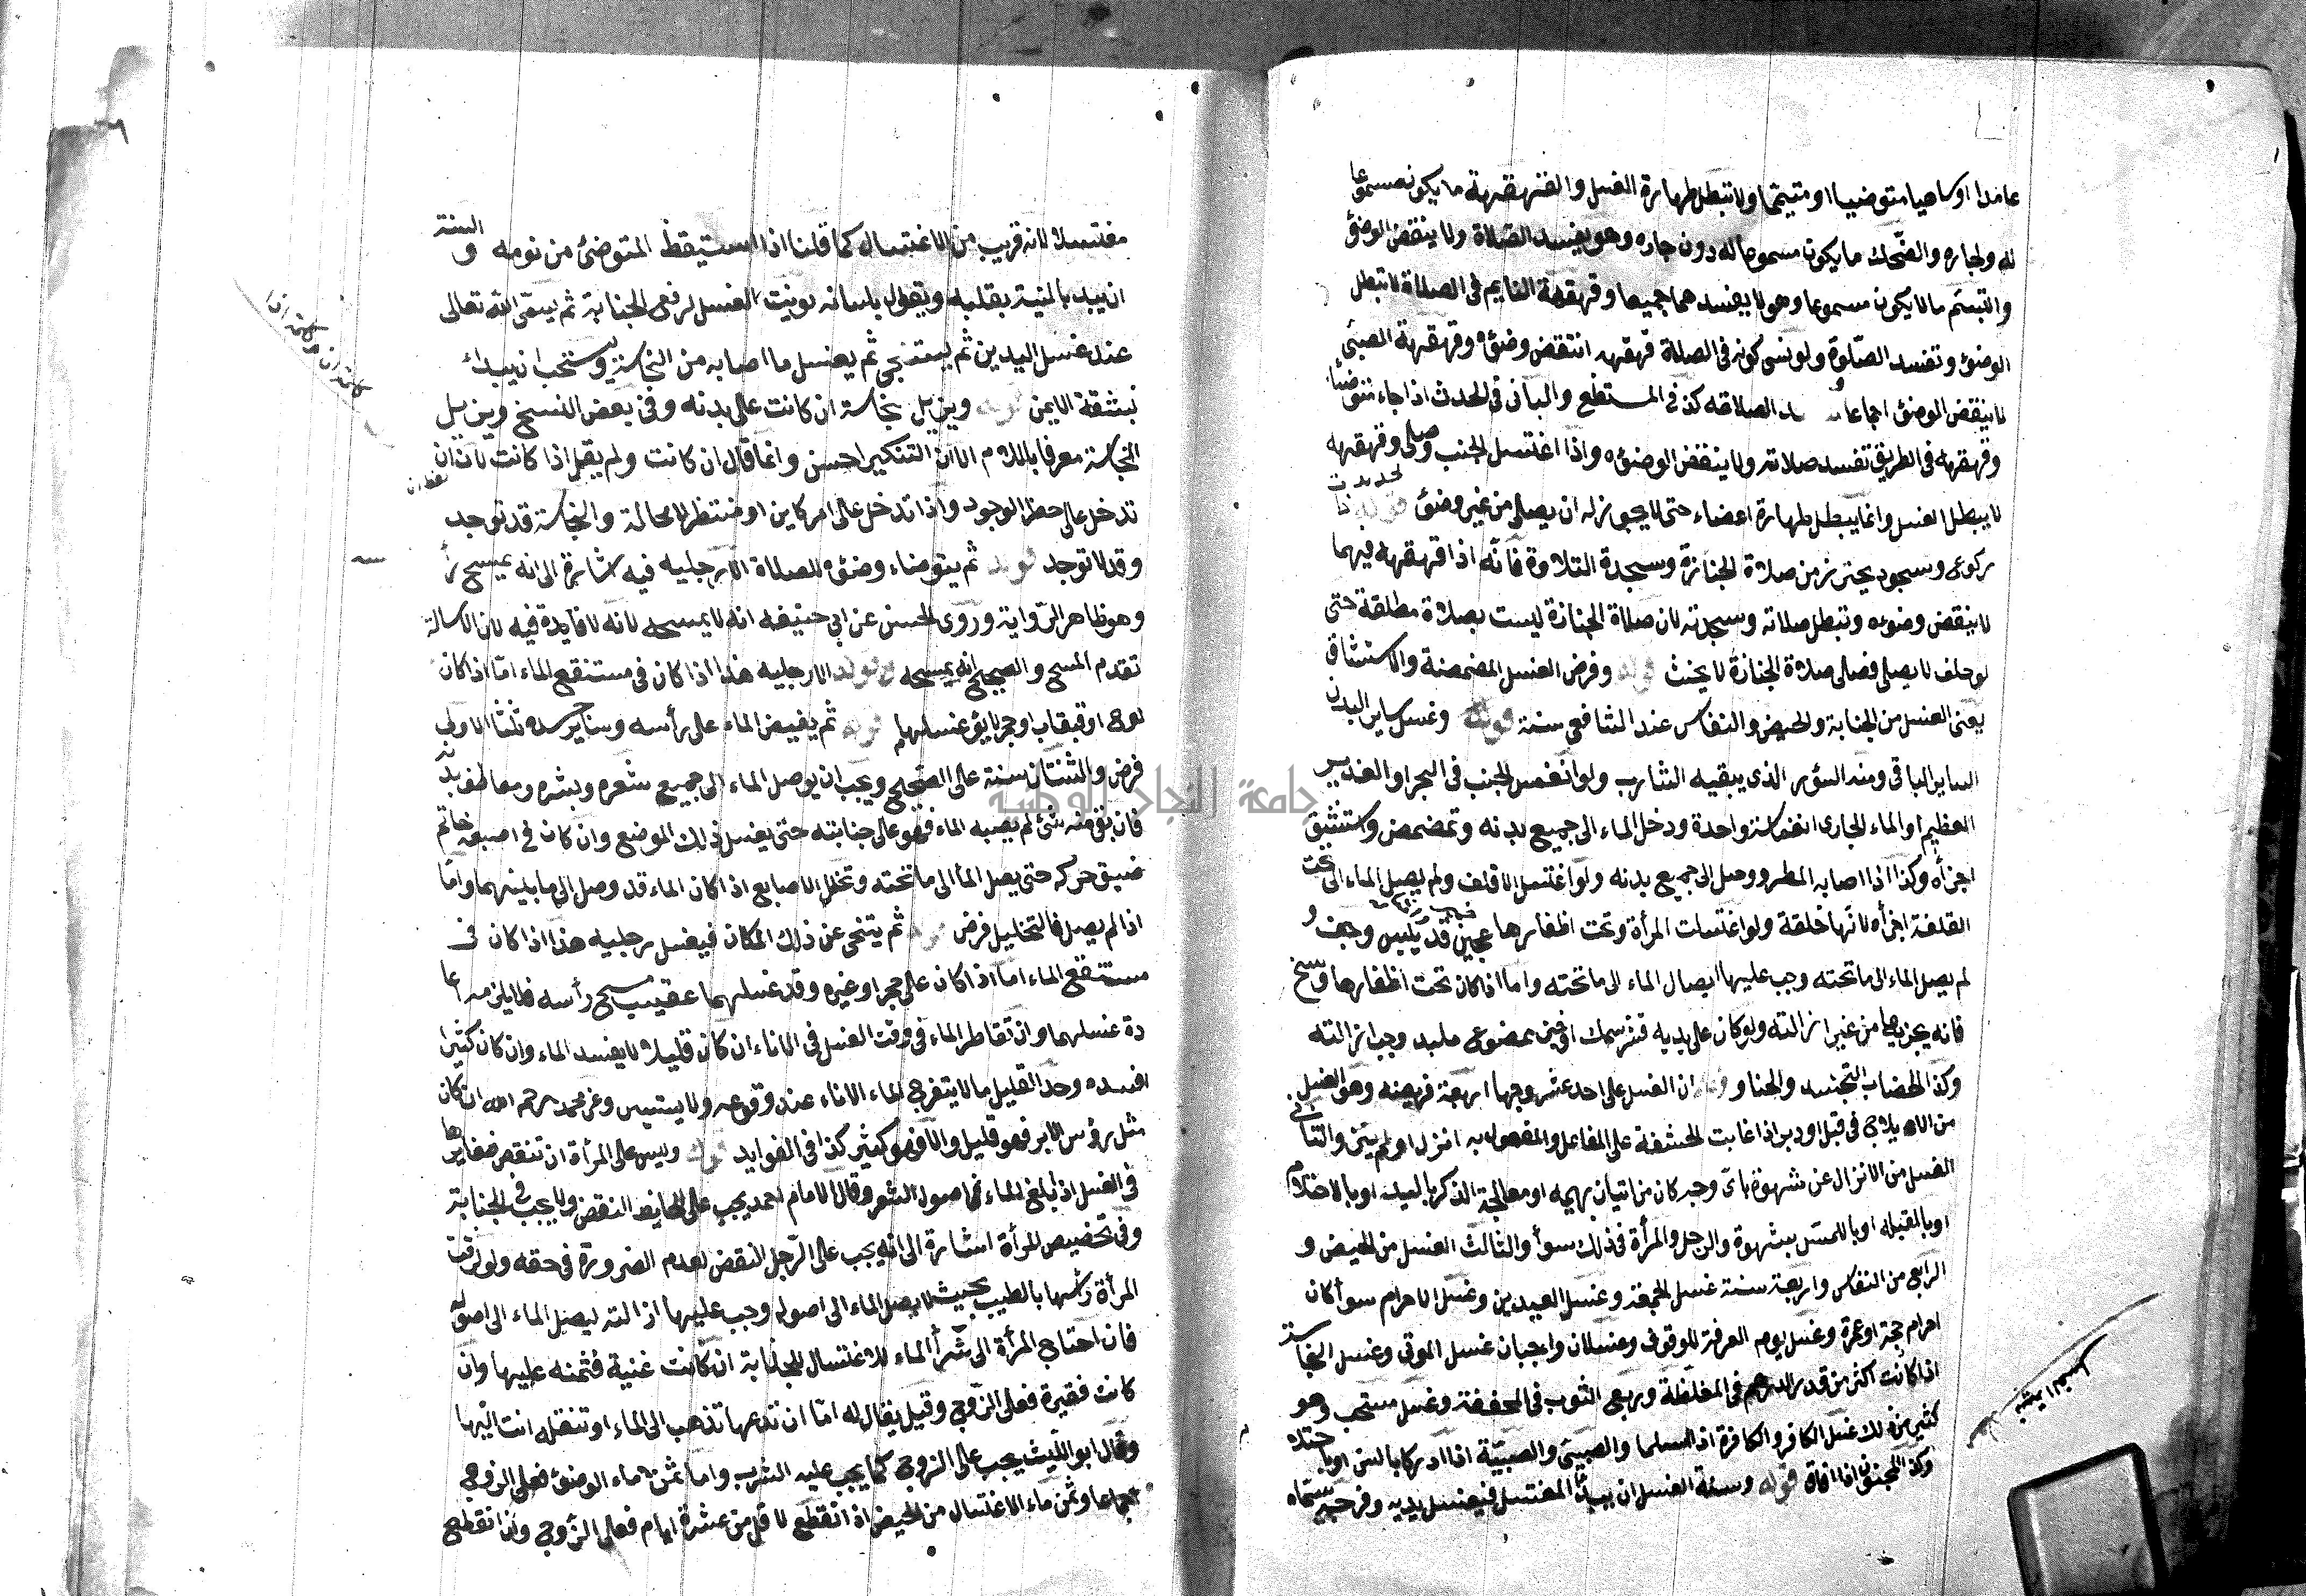 عامدا اوساهيا متوضيا او متيمما ولا تبطل طهارة الغسل والقهقهة ما يكون مسموعا
له ولجاره والضحك ما يكون مسموعا له دون جاره وهو يفسد الصلاة ولا ينقض الوضوء
والتبسم ما لا يكون مسموعا وهو لا يفسدهما جميعا وقهقهة النايم في الصلاة لا تبطل
الوضوء وتفسد الصلوة ولو نسى كونه في الصلاة فقهقه انتقض وضوءه وقهقهة الصبي
لا ينقض الوضوء اجماعا الصلاة كذا في المستصفى والباني في الحدث اذا جاء متوضيا
وقهقه في الطريق تفسد صلاته ولا ينقض الوضوء واذا اغتسل الجنب وصلى وقهقه
لا يبطل الغسل وانما يبطل طهارة اعضاء حتى لا يجوز له ان يصلي من غير وضوء
ركوع وسجود يحترز من صلاة الجنازة وسجدة التلاوة فانه اذا قهقه فيهما
لا ينقض وضوءه وتبطل صلاته وسجدته لان صلاة الجنازة ليست بصلاة مطلقة حتى
لو حلف لا يصلي فصلى صلاة الجنازة لا يحنث قوله وفرض الغسل المضمضة والاستنشاق
يعني الغسل من الجنابة والحيض والنفاس عند الشافعي سنة قوله وغسل ساير البدن
الساير الباقي ومنه السؤر الذي يبقيه الشارب ولو انغمس الجنب في البحر او الغدير
العظيم او الماء الجاري انغماسة واحدة ودخل الماء الى جميع بدنه وتمضمض واستنشق
اجزأه وكذا اذا اصابه المطر ووصل الى جميع بدنه ولو اغتسل الاقلف ولم يصل الماء الى تحت
القلفة اجزأه لانها خلقة ولو اغتسلت المرأة وتحت اظفارها عجين قد يبس وجف و
لم يصل الماء الى ما تحته وجب عليها ايصال الماء الى ما تحته واما اذا كان تحت اظفارها وسخ
فانه يجزيها من غير ازالته ولو كان على يديه قشر سمك او خبز ممضوغ ملبد وجب ازالته
وكذا الخضاب والحنا ان الغسل على احد عشر وجها اربعة فريضة وهو الغسل
من الايلاج في قبل او دبر اذا غابت الحشفة على الفاعل والمفعول به انزل او لم ينزل والثاني
الغسل من الانزال عن شهوة باي وجه كان من اتيان بهيمة او معالجة الذكر باليد او بالاحتلام
او بالقبلة او باللمس بشهوة والرجل والمرأة في ذلك سوأ والثالث الغسل من الحيض و
الرابع من النفاس واربعة سنة غسل الجمعة وغسل العيدين وغسل الاحرام سوأ كان
احرام حجة او عمرة وغسل يوم العرفة للوقوف وغسلان واجبان غسل الموتى وغسل النجاسة
اذا كانت اكثر من قدر الدرهم في المغلظة وربع الثوب في المخففة وغسل مستحب وهو
كثير من ذلك غسل الكافر والكافرة اذا اسلما والصبي والصبية اذا ادركا بالسن
وكذا المجنون اذا افاق قوله وسنة الغسل ان يبدأ المغتسل فيغسل يديه وفرجه سماه
مغتسلا لانه قريب من الاغتسال كما قلنا اذا استيقظ المتوضئ من نومه والسنة
ان يبدا بالنية بقلبه ويقول بلسانه نويت الغسل لرفع الجنابة ثم يسمي الله تعالى
عند غسل اليدين ثم يستنجي ثم يغسل ما اصابه من النجاسة ويستحب ان يبداء
بشقه الايمن قوله ويزيل نجاسة ان كانت على بدنه وفي بعض النسخ ويزيل
النجاسة معرفا باللام الا ان التنكير احسن وانما قال ان كانت ولم يقل اذا كانت لان ان
تدخل على خطر الوجود واذا تدخل على امر كاين او منتظر لا محالة والنجاسة قد توجد
وقد لا توجد قوله ثم يتوضاء وضوءه للصلاة الا رجليه فيه اشارة الى انه يمسح رأ
وهو ظاهر الرواية وروى الحسن عن ابي حنيفة انه لا يمسحه لانه لا فايدة فيه لان الاسالة
تقدم المسح والصحيح انه يمسحه قوله الا رجليه هذا اذا كان في مستنقع الماء اما اذا كان
لوح او قبقاب او حجر لا يؤخر غسلهما قوله ثم يفيض الماء على رأسه وساير جسده ثلثا الاولى
فرض والثنتان سنة على الصحيح ويجب ان يوصل الماء الى جميع شعره وبشره ومعاطف بدنه
فان بقي منه شئ لم يصبه الماء فهو على جنابته حتى يغسل ذلك الموضع وان كان في اصبعه خاتم
ضيق حركه حتى يصل الماء الى ما تحته وتخلل الاصابع اذا كان الماء قد وصل الى ما بينهما واما
اذا لم يصل فالتخليل فرض قوله ثم يتنحى عن ذلك المكان فيغسل رجليه هذا اذا كان في
مستنقع الماء اما اذا كان على حجر او غيره وقد غسلهما عقيب مسح رأسه فلا يلزمه اعا
دة غسلهما وان تقاطر الماء في وقت الغسل في الاناء ان كان قليلا لا يفسد الماء وان كان كثيرا
افسده وحد القليل ما لا ينفرج الماء الاناء عند وقوعه ولا يستبين وعن محمد رحمه الله ان كان
مثل رؤس الابر فهو قليل والا فهو كثير كذا في الفوايد قوله وليس على المرأة ان تنقض ضفايرها
في الغسل اذا بلغ الماء اصول الشعر وقال الامام احمد يجب على الحايض النقض ولا يجب في الجنابة
وفي تخصيص المرأة اشارة الى انه يجب على الرجل النقض لعدم الضرورة في حقه ولو لزقت
المرأة رأسها بالطيب بحيث لا يصل الماء الى اصوله وجب عليها ازالته ليصل الماء الى اصوله
فان احتاج المرأة الى شرأ الماء للاغتسال للجنابة ان كانت غنية فثمنه عليها وان
كانت فقيرة فعلى الزوج وقيل يقال له اما ان تدعها تذهب الى الماء او تنقله انت اليها
وقال ابو الليث يجب على الزوج كما يجب عليه الشرب واما ثمن ماء الوضوء فعلى الزوج
اجماعا وثمن ماء الاغتسال من الحيض اذا انقطع لاقل من عشرة ايام فعلى الزوج وان انقطع
جامعة النجاح الوطنية